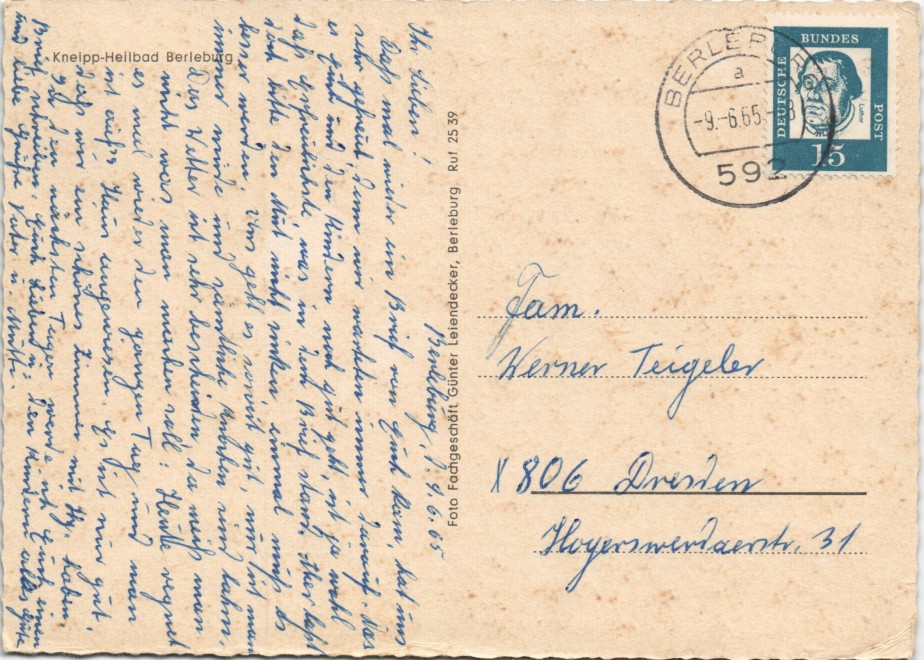 Kneipp-Heilbad Berleburg
Berleburg, d. 9.6.65
Ihr Lieben!
Daß mal wieder ein Brief von Euch kam, hat uns
sehr gefreut, denn wir warten immer darauf. Das
es Euch und den Kindern noch gut geht, ist ja wohl
das erfreulichste, was in dem Brief stand. Aber laßt
doch bitte den Mut nicht sinken, einmal muß es
besser werden. Uns geht es soweit gut, nur ist man
immer müde und sämtliche Knochen sind lahm.
Das Wetter ist sehr bescheiden, da weiß man
nicht was man machen soll. Heute regnet
es mal wieder den ganzen Tag und man
ist aufs Haus angewiesen. Es ist nur gut,
daß wir ein schönes Zimmer mit Hzg. haben.
In den nächsten Tagen werde ich Euch einen
Brief schreiben, Euch Lieben u. den Kindern alles Gute
und liebe Grüße Vater u. Mutti
Foto Fachgeschäft Günter Leiendecker, Berleburg Ruf 25 39
BERLEBURG
a
-9.-6.65.-8
592
DEUTSCHE
BUNDES
POST
Luther
15
Fam.
Werner Teigeler
X 806 Dresden
Hoyerswerdaerstr. 31